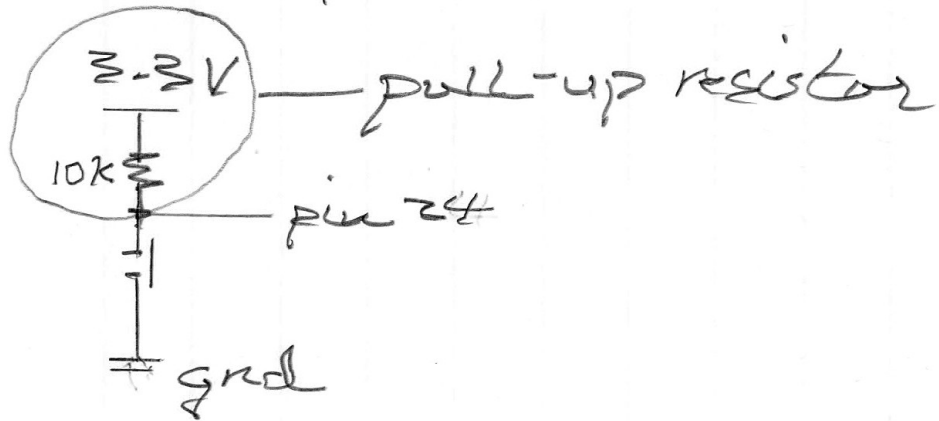 3.3V
pull-up resistor
10K
pin 24
gnd